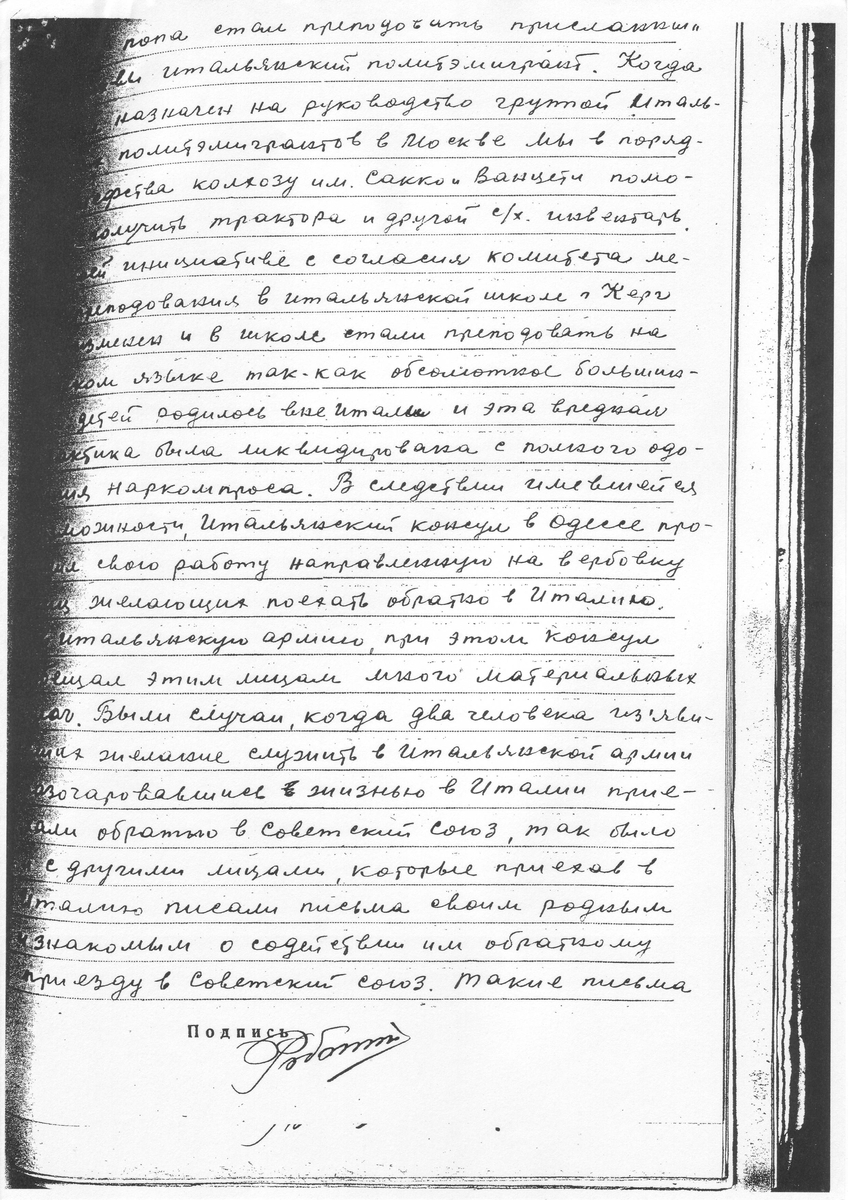 попа стал преподовать присланный
итальянский политэмигрант. Когда
назначен на руководство группой Италь-
политэмигрантов в Москве мы в поряд-
фства колхозу им. Сакко и Ванцети помо-
олучить трактора и другой с/х. инвентарь.
ей инициативе с согласия комитета ме-
реподования в итальянской школе г Керч
изменен и в школе стали преподовать на
ком языке так-как обсолютное большин-
детей родилось вне Италии и эта вредная
актика была ликвидирована с полного одо-
ия наркомпроса. В следствии имевшейся
можности, Итальянский консул в Одессе про-
ил свою работу направленную на вербовку
иц желающих поехать обратно в Италию.
итальянскую армию, при этом консул
ещал этим лицам много материальных
лаг. Были случаи, когда два человека из'яви-
ших желание служить в Итальянской армии
азочаровавшись в жизнью в Италии прие-
али обратью в Советский Союз, так было
с другими лицами, которые приехав в
Италию писали письма своим родным
и знакомым о содействии им обратному
приезду в Советский союз. Такие письма
Подпись
Роботти